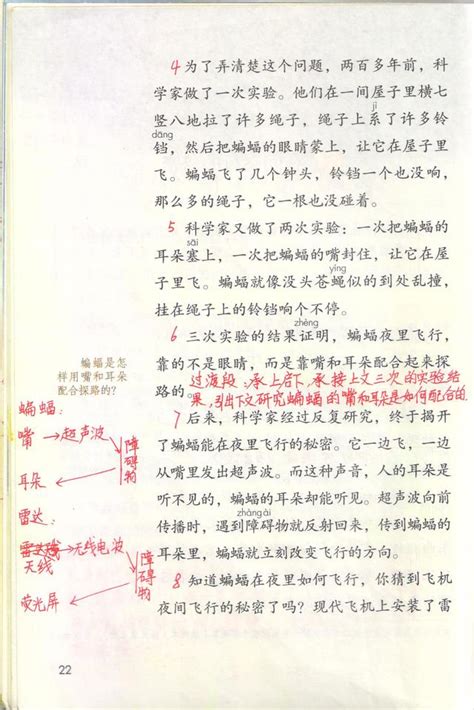 4为了弄清楚这个问题，两百多年前，科
学家做了一次实验。他们在一间屋子里横七
jì
竖八地拉了许多绳子，绳子上系了许多铃
dāng
铛，然后把蝙蝠的眼睛蒙上，让它在屋子里
飞。蝙蝠飞了几个钟头，铃铛一个也没响，
那么多的绳子，它一根也没碰着。
5 科学家又做了两次实验：一次把蝙蝠的
sāi
耳朵塞上，一次把蝙蝠的嘴封住，让它在屋
yíng
子里飞。蝙蝠就像没头苍蝇似的到处乱撞，
挂在绳子上的铃铛响个不停。
zhèng
6 三次实验的结果证明，蝙蝠夜里飞行，
靠的不是眼睛，而是靠嘴和耳朵配合起来探
路的。过渡段：承上启下，承接上文三次的实验结
果，引出下文研究蝙蝠的嘴和耳朵是如何配合的
7后来，科学家经过反复研究，终于揭开
了蝙蝠能在夜里飞行的秘密。它一边飞，一边
从嘴里发出超声波。而这种声音，人的耳朵是
听不见的，蝙蝠的耳朵却能听见。超声波向前
zhàng ài
传播时，遇到障碍物就反射回来，传到蝙蝠的
耳朵里，蝙蝠就立刻改变飞行的方向。
8 知道蝙蝠在夜里如何飞行，你猜到飞机
夜间飞行的秘密了吗？现代飞机上安装了雷
蝙蝠是怎
样用嘴和耳朵
配合探路的？
蝙蝠：
嘴→超声波
障碍物
耳朵
雷达：
天线
无线电波
障碍物
荧光屏
22